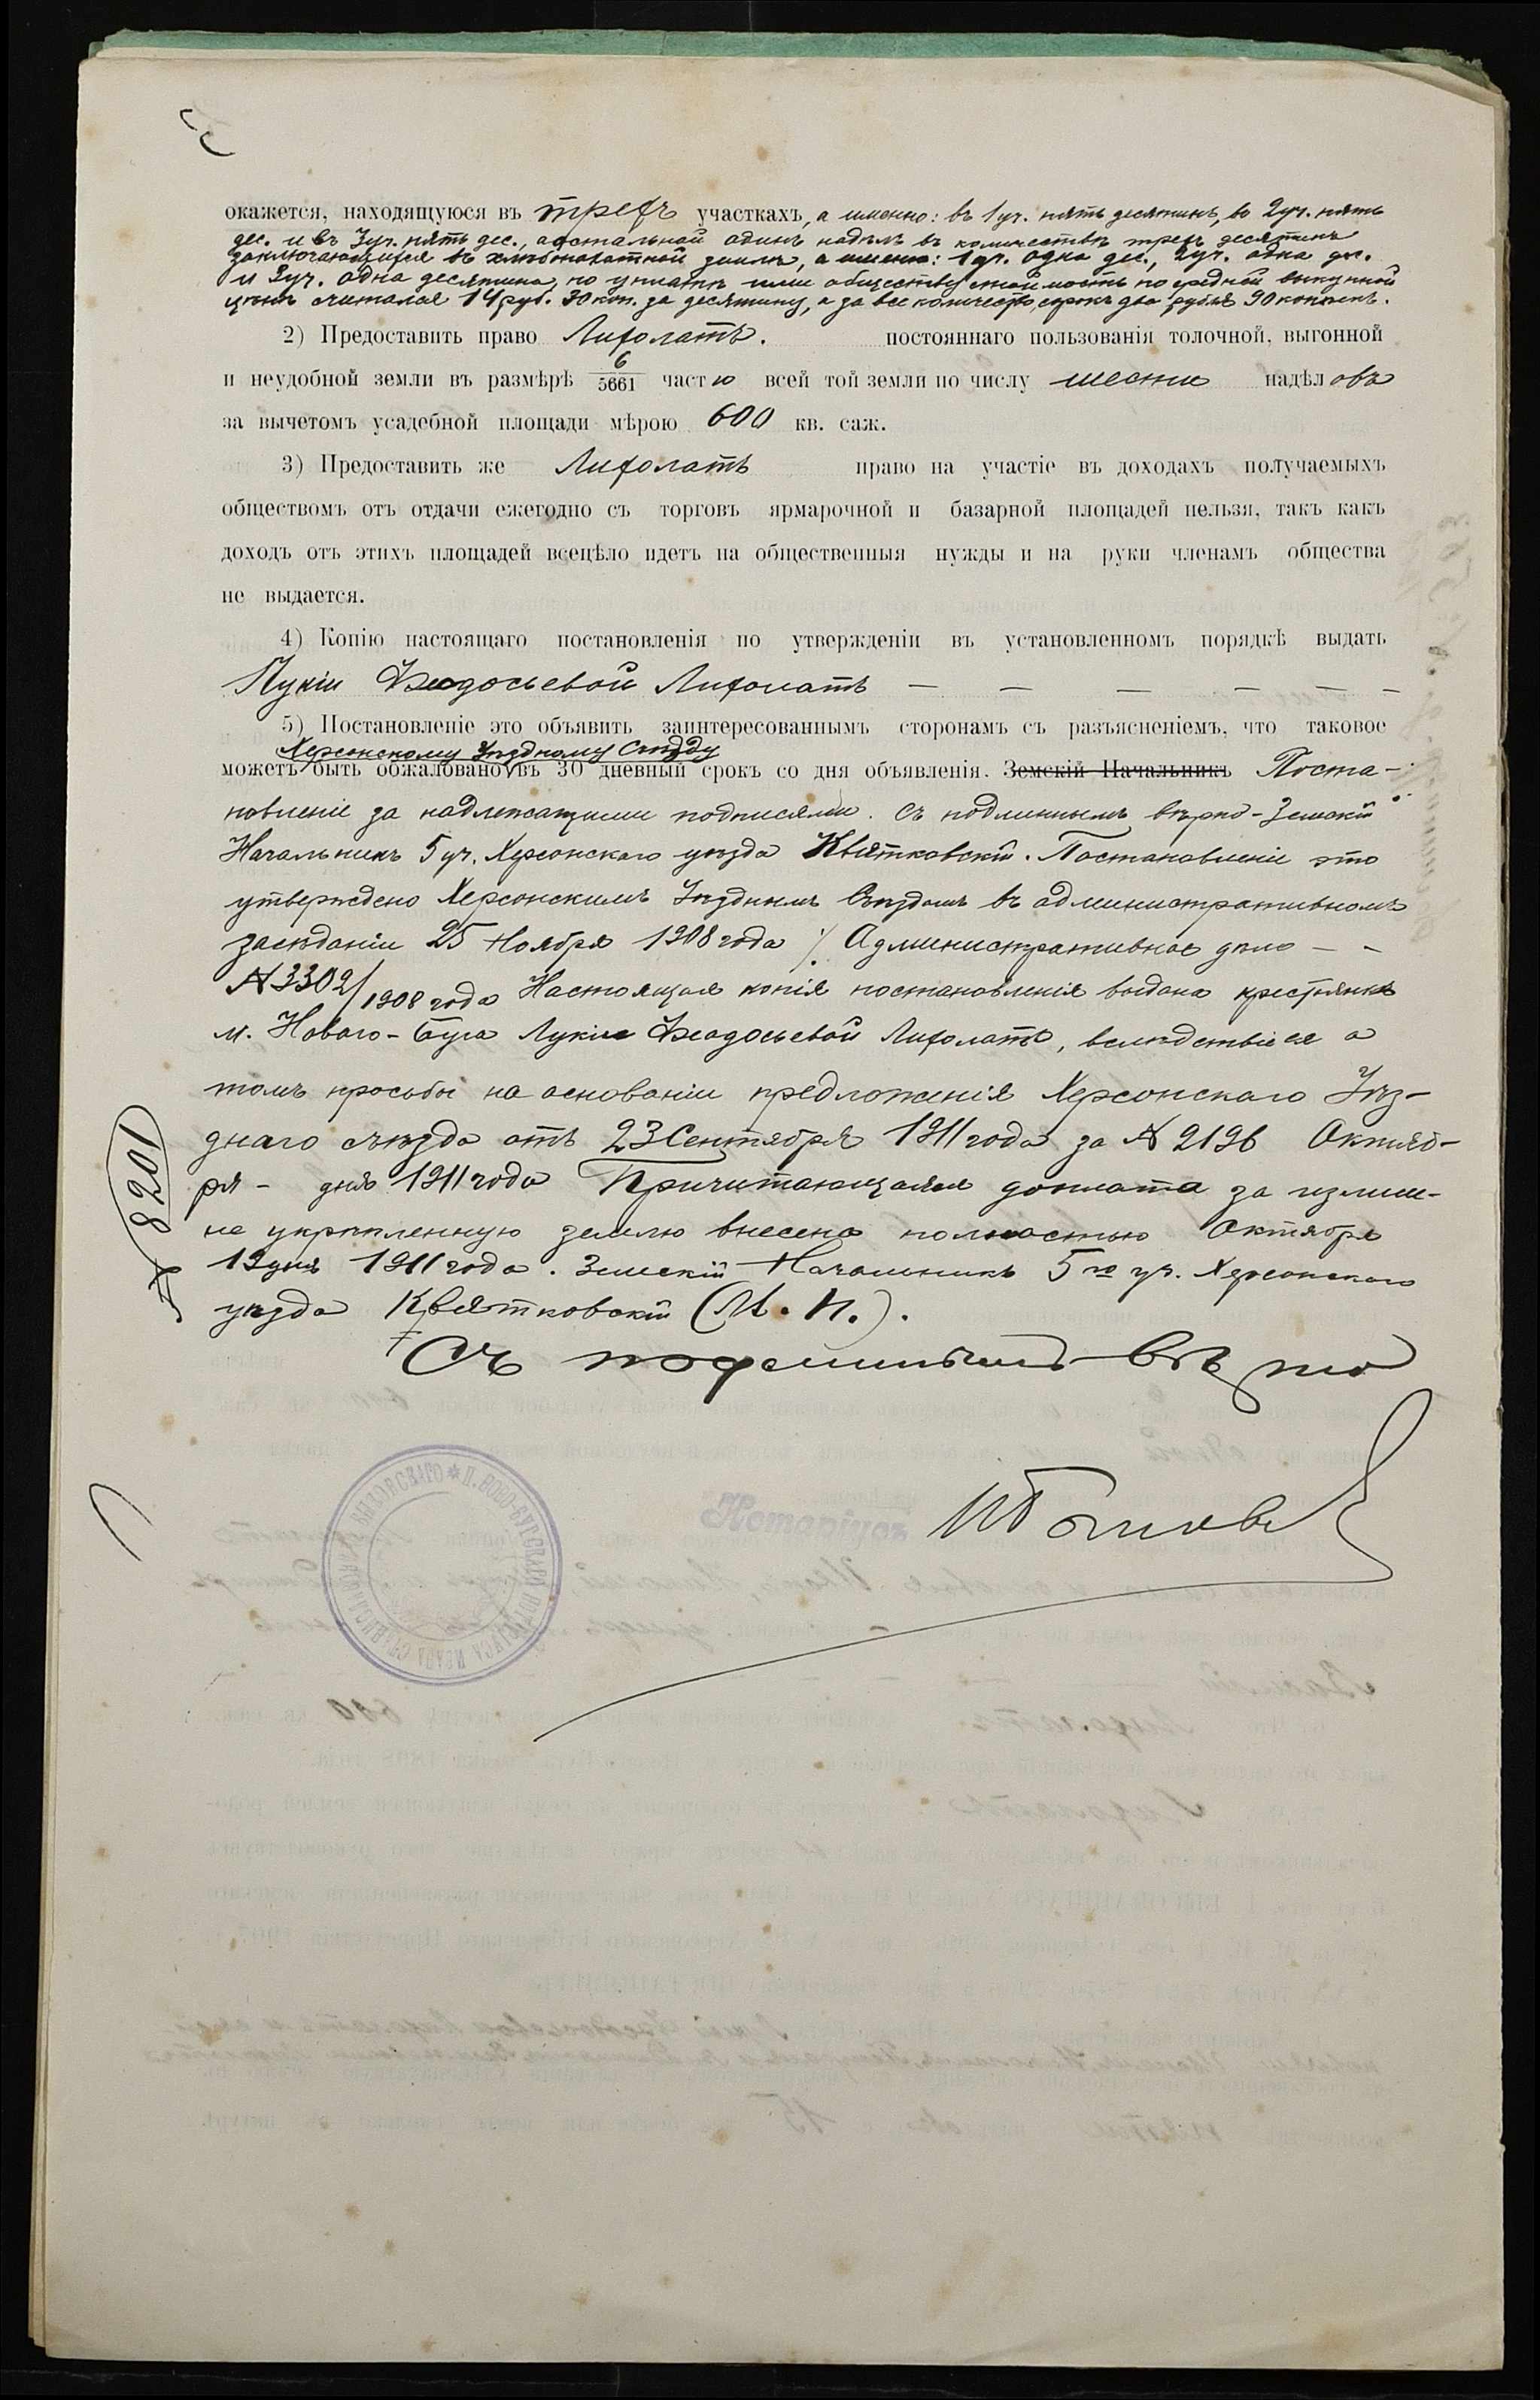 окажется, находящуюся въ трехъ участкахъ, а именно: въ 1 уч. пять десятинъ, во 2 уч. пять
дес. и въ 3 уч. пять дес., а остальной одинъ надѣлъ въ количествѣ трехъ десятинъ
заключающійся въ хлѣбопахатной землѣ, а именно: 1 уч. одна дес., 2 уч. одна дес.
и 3 уч. одна десятина, по уплатѣ ими обществу стоимость по средней выкупной
цѣнѣ считая 14 руб. 30 коп. за десятину, а за все количество, сорокъ два рубля 90 копѣекъ.
2) Предоставить право Лихолатъ. постояннаго пользованія толочной, выгонной
и неудобной земли въ размѣрѣ 6/5661 частю всей той земли по числу шести надѣловъ
за вычетомъ усадебной площади мѣрою 600 кв. саж.
3) Предоставить же Лихолатъ право на участіе въ доходахъ получаемыхъ
обществомъ отъ отдачи ежегодно съ торговъ ярмарочной и базарной площадей нельзя, такъ какъ
доходъ отъ этихъ площадей всецѣло идетъ на общественныя нужды и на руки членамъ общества
не выдается.
4) Копію настоящаго постановленія по утвержденіи въ установленномъ порядкѣ выдать
Лукіи Ѳеодосьевой Лихолатъ — — — — — —
5) Постановленіе это объявить заинтересованнымъ сторонамъ съ разъясненіемъ, что таковое
Херсонскому Уѣздному Съѣзду
можетъ быть обжаловано въ 30 дневный срокъ со дня объявленія. Земскій Начальникъ Поста-
новленіе за надлежащими подписями. Съ подлиннымъ вѣрно: Земскій
Начальникъ 5 уч. Херсонскаго уѣзда Квятковскій. Постановленіе это
утверждено Херсонскимъ Уѣзднымъ Съѣздомъ въ административномъ
засѣданіи 25 Ноября 1908 года ⁒ Административное дѣло — —
№ 3302/1908 года Настоящая копія постановленія выдана крестьянкѣ
м. Новаго-Буга Лукіи Ѳеодосьевой Лихолатъ, вслѣдствіе ея о
томъ просьбы на основаніи предложенія Херсонскаго Уѣз-
днаго съѣзда отъ 23 Сентября 1911 года за № 2196 Октяб-
ря - дня 1911 года Причитающаяся доплата за излиш-
не укрѣпленную землю внесена полностью Октября
19 дня 1911 года. Земскій Начальникъ 5го уч. Херсонскаго
уѣзда Квятковскій (М. П.).
Съ подлиннымъ вѣрно
Нотаріусъ
№ 8201